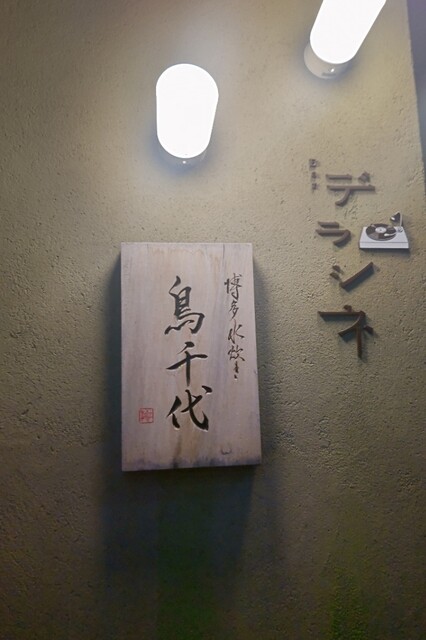 デラシネ
博多水炊き
鳥千代